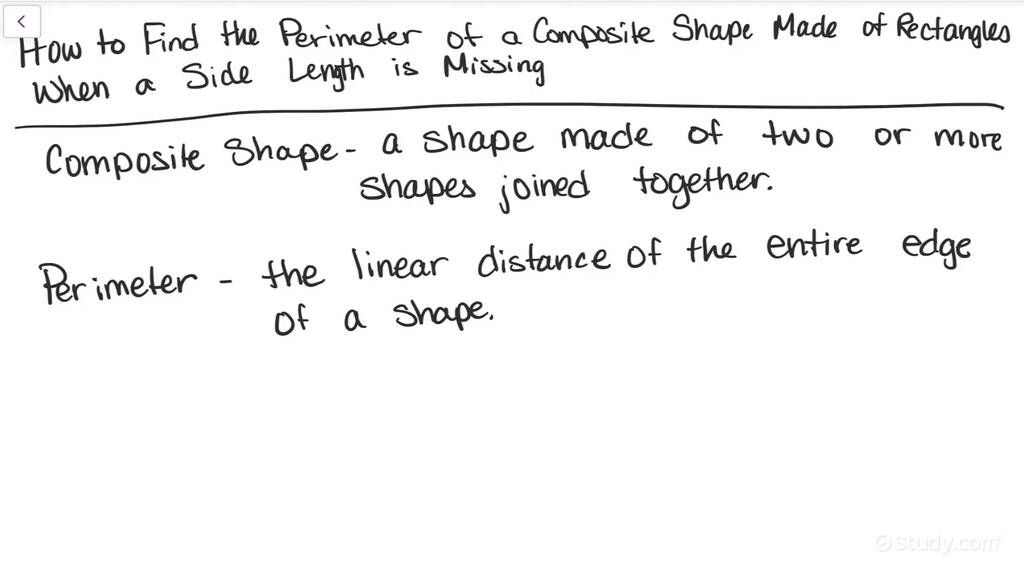 How to Find the Perimeter of a Composite Shape Made of Rectangles
When a Side Length is Missing
Composite Shape - a shape made of two or more
shapes joined together.
Perimeter - the linear distance of the entire edge
of a shape.
Study.com